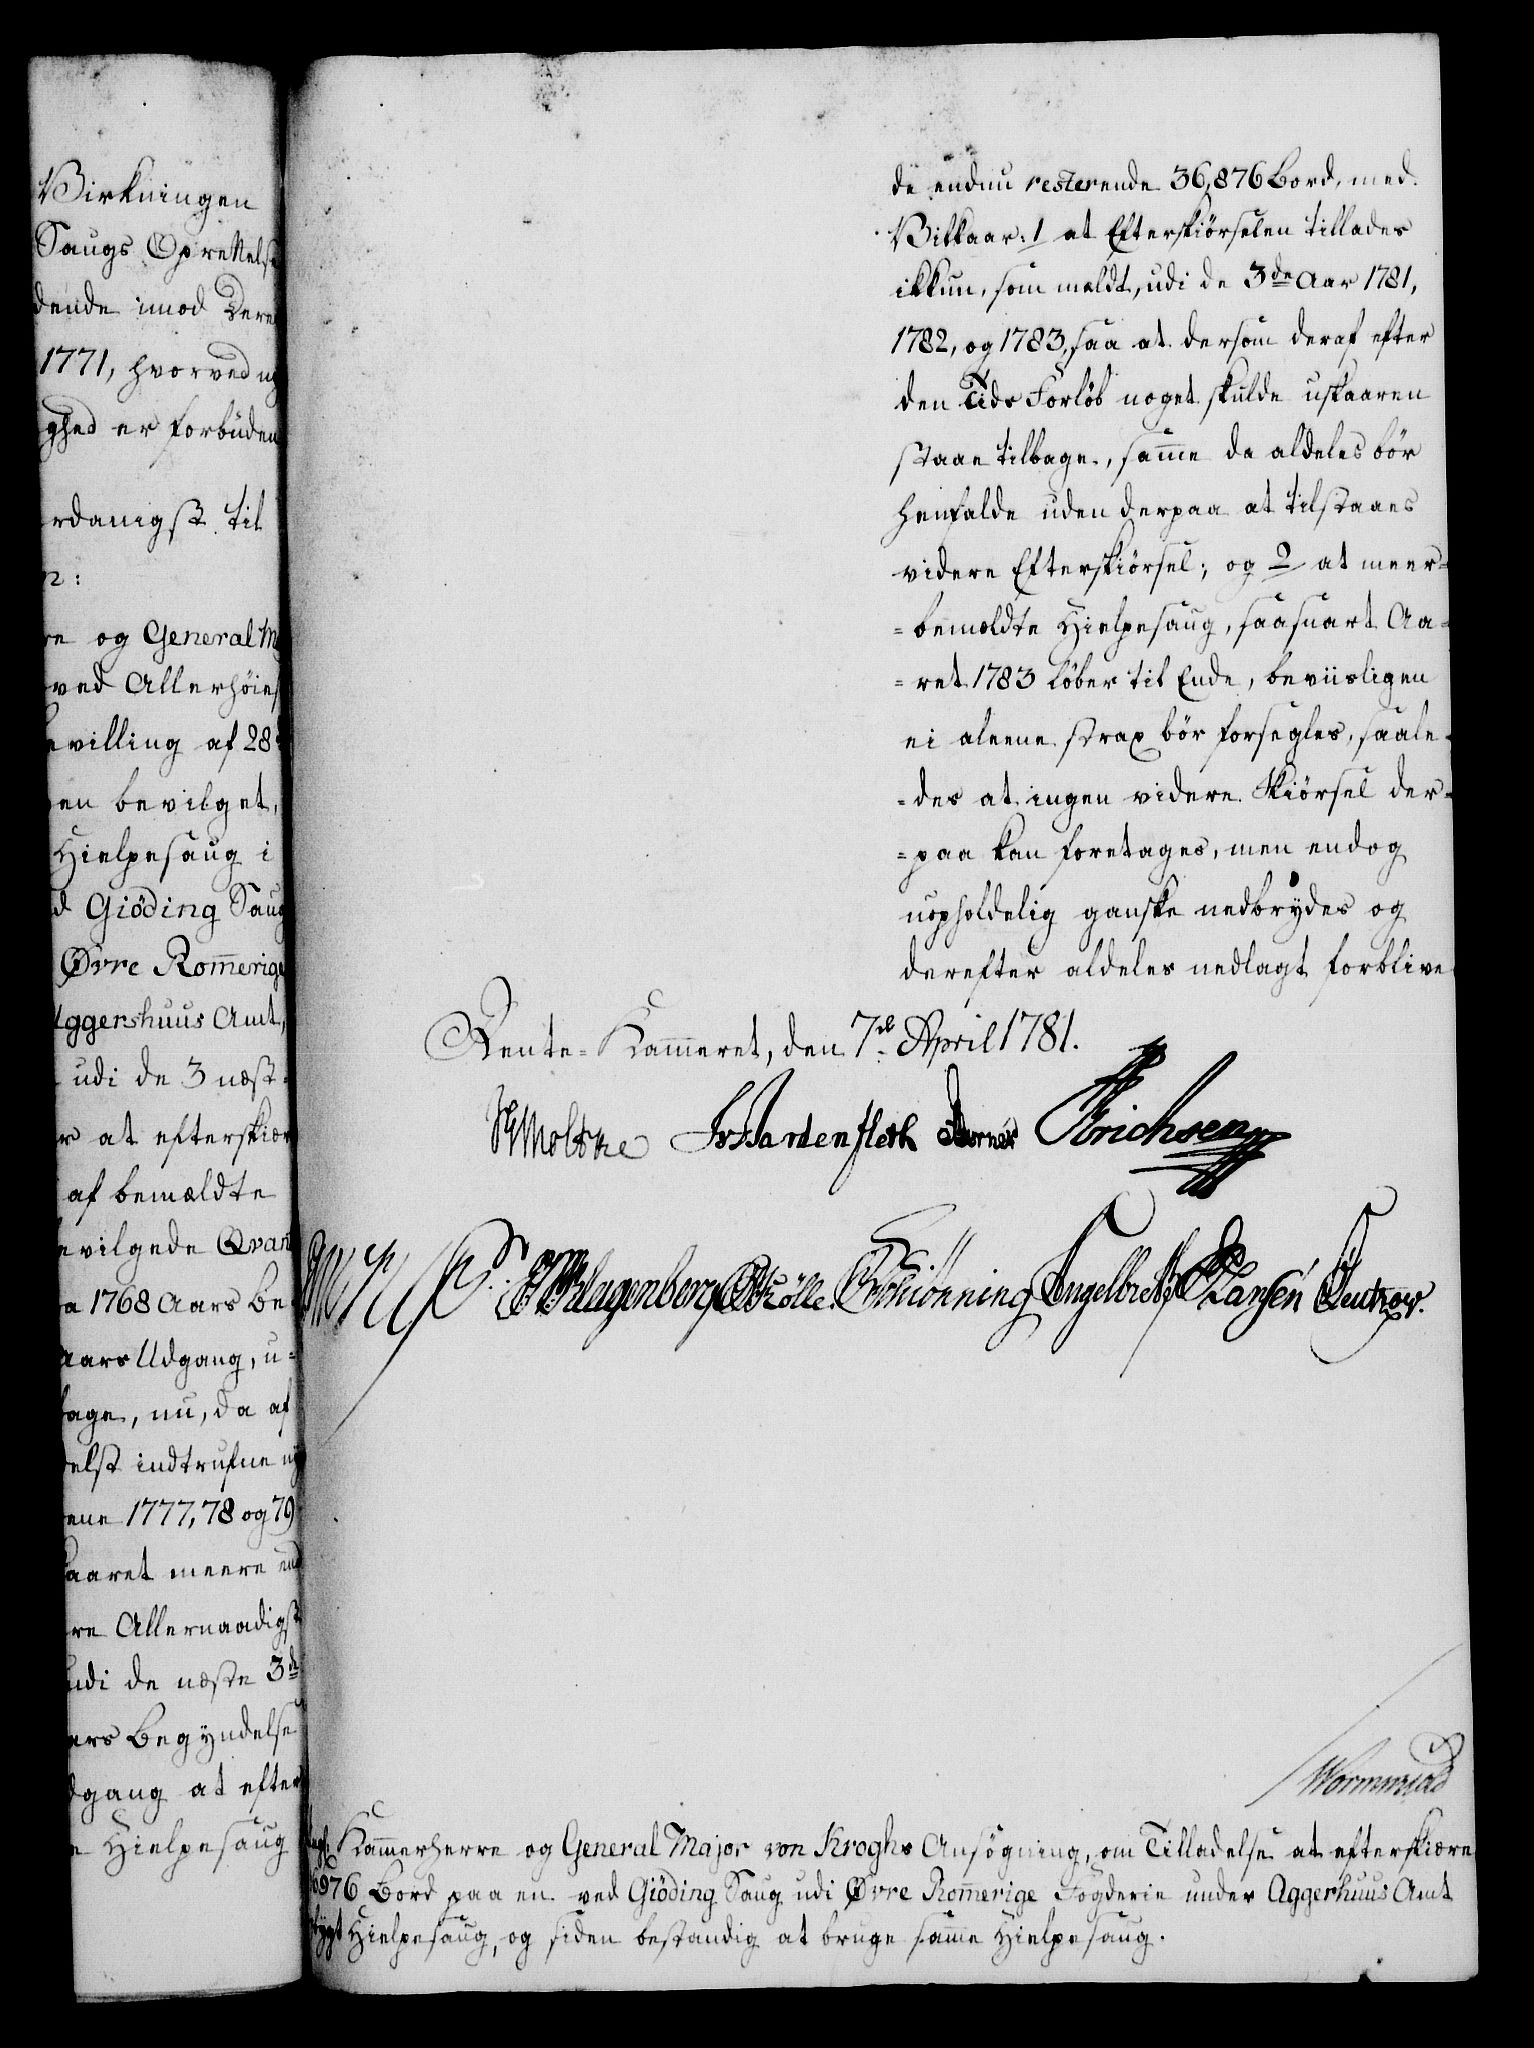 Virkningen
Saugs Oprettelse
dende imod Deres
1771, hvorved
ghed er forbuden
rdanigst til
n:
re og General
ved Allerhöies
evilling af 28
en bevilget,
Hielpesaug i
d Giöding Saug
Øvre Romerige
Aggershuus Amt,
udi de 3 næst-
r at efterskiær
af bemældte
evilgede Qvan
a 1768 Aars Be
Aars Udgang, u-
bage, nu, da af
delst indtrufne
ene 1777, 78 og 79
kaaret meere end
re Allernaadigst
udi de næste 3de
ers Begyndelse
dgang at efter
e Hielpesaug
de endnu resterende 36,876 Bord, med
Vilkaar: 1 at Efterskiörselen tillades
ikkun, som meldt, udi de 3de Aar 1781,
1782, og 1783, saa at dersom deraf efter
den Tids Forlöb noget skulde uskaaren
staae tilbage, samme da aldeles bör
henfalde uden derpaa at tilstaaes
videre Efterskiörsel; og 2 at meer-
=bemeldte Hielpesaug, saasnart Aa-
=ret 1783 löber til Ende, beviisligen
ei aleene strax bör forsegles, saale-
=des at ingen videre Skiörsel der-
=paa kan foretages, men endog
uopholdelig ganske nedbrydes og
derefter aldeles nedlagt forblive
Rente-Kammeret, den 7de April 1781.
Moltke Hardenfleth Borner Erichsen
Klagenberg Kölle Schiönning Engelbreth Hansen Lutzow.
Wormskiold
Kammerherre og General Major von Kroghs Ansögning, om Tilladelse at efterskiære
6976 Bord paa en ved Giöding Saug udi Øvre Romerige Fögderie under Aggerhuus Amt
bygt Hielpesaug, og siden bestandig at bruge samme Hielpesaug.